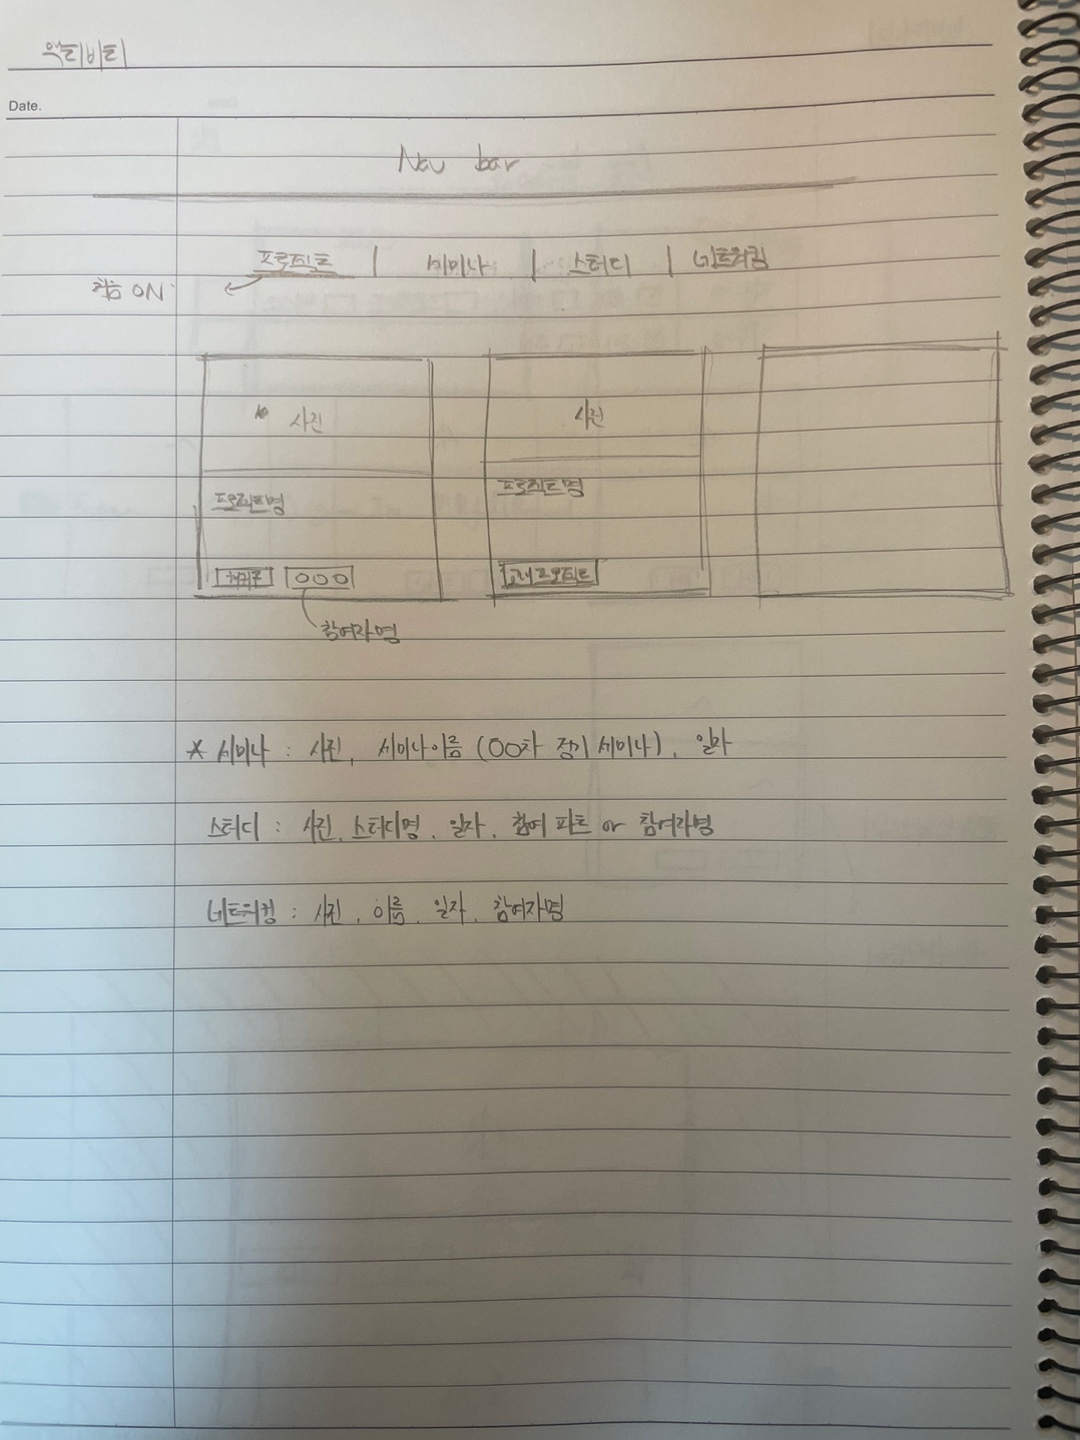 액티비티
Date.
Nav bar
프로젝트 | 세미나 | 스터디 | 네트워킹
처음 ON
사진 사진
프로젝트명 프로젝트명
OOO
참여자명
* 세미나 : 사진, 세미나이름 (OO차 정기 세미나), 일자
스터디 : 사진, 스터디명, 일자, 참여 파트 or 참여자명
네트워킹 : 사진, 이름, 일자, 참여자명